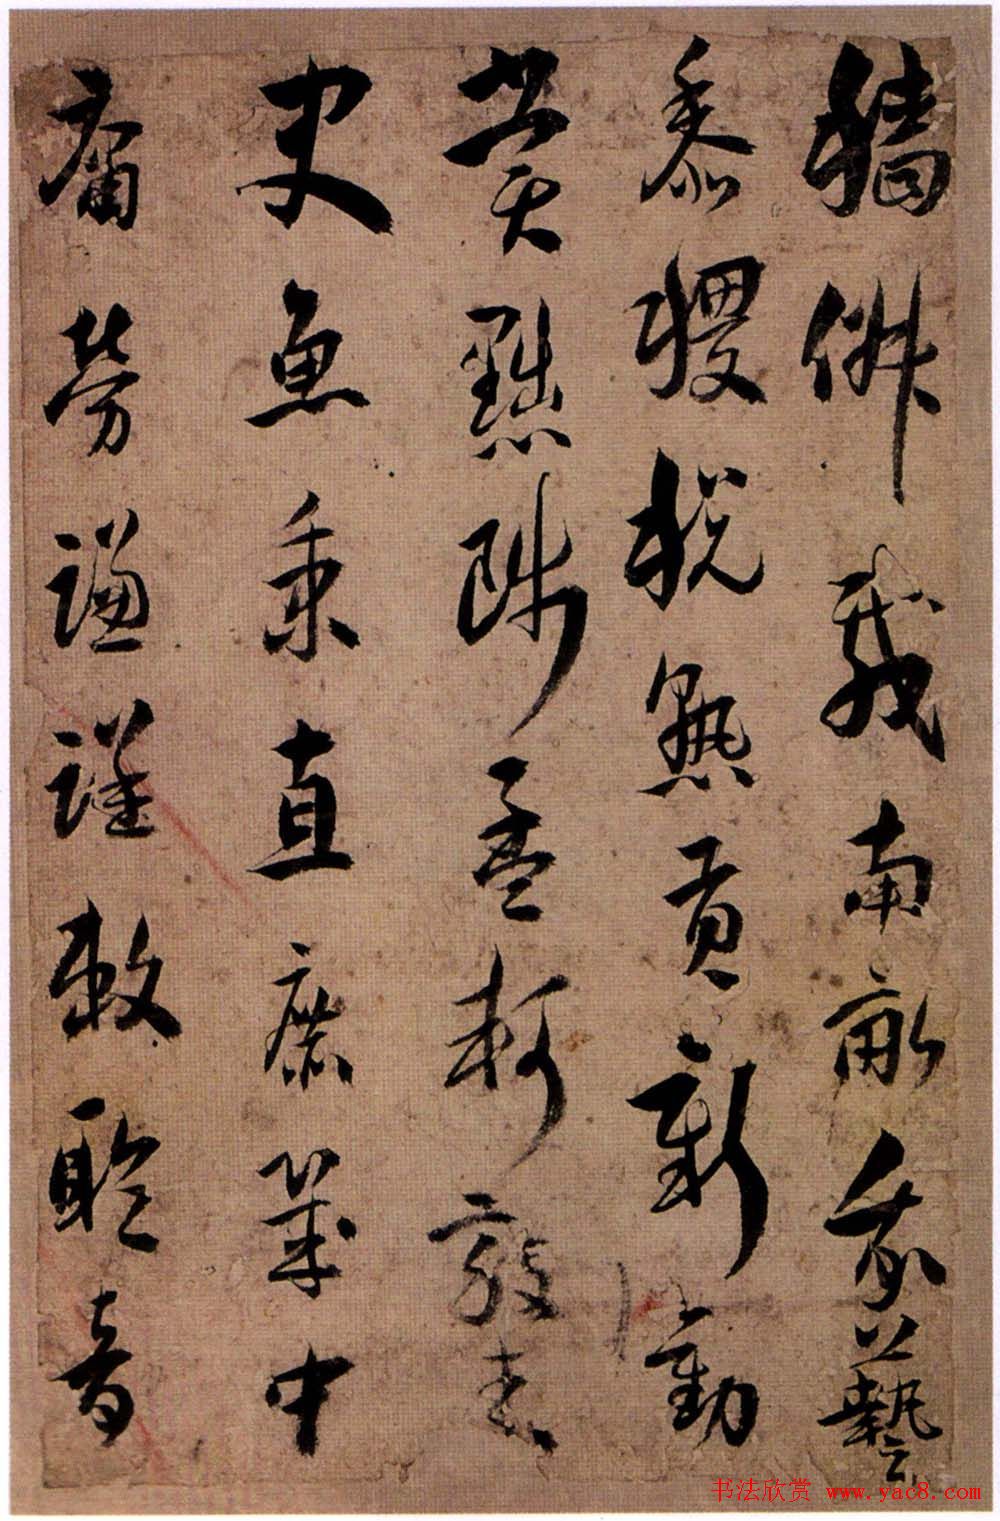 穡俶載南畝我藝
黍稷稅熟貢新勸
賞黜陟孟軻敦素
史魚秉直庶幾中
庸勞謙謹敕聆音
书法欣赏 www.yac8.com